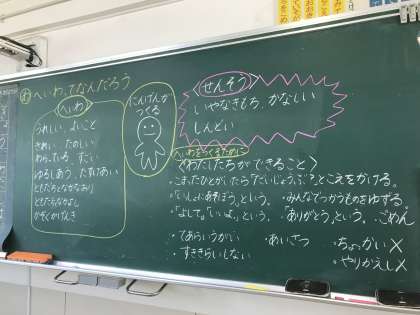 め へいわってなんだろう
へいわ
うれしい、よいこと
きれい、たのしい
わらっている、すごい
ゆるしあう、たすけあい
ともだちとなかなおり
ともだちなかよし
かぞくがげんき
にんげんが
つくる
せんそう
いやなきもち、かなしい
しんどい
へいわをつくるために
〈わたしたちができること〉
・こまったひとがいたら「だいじょうぶ?」とこえをかける。
・「いっしょにあそぼう」という。・みんなでつかうものをゆずる。
・「よして」「いいよ」という。・「ありがとう」という。ごめん
・てあらいうがい ・あいさつ ・ちょっかい×
・すききらいしない ・やりかえし×